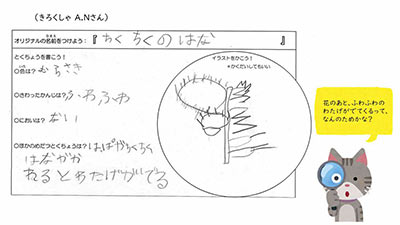 (きろくしゃ A.Nさん)
オリジナルの名前をつけよう:『ちくちくのはな』
とくちょうを書こう!
○色は?むらさき
○さわったかんじは?ふわふわ
○においは?ない
○ほかのめだつとくちょうは?はっぱがちくちく
はながか
れるとわたげがでる
イラストをかこう!
*かくだいしてもいい
花のあと、ふわふわの
わたげがでてくるって、
なんのためかな?